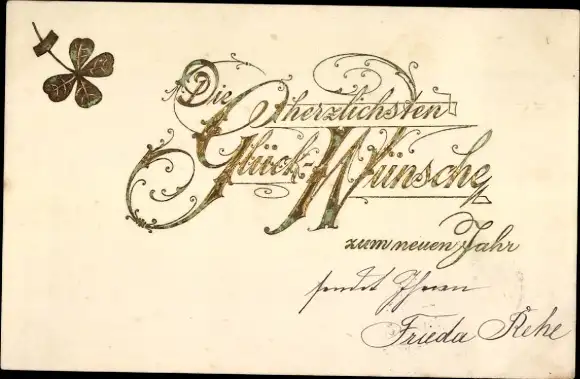 Die herzlichsten
Glück-Wünsche
zum neuen Jahr
sendet Ihnen
Frieda Rehe